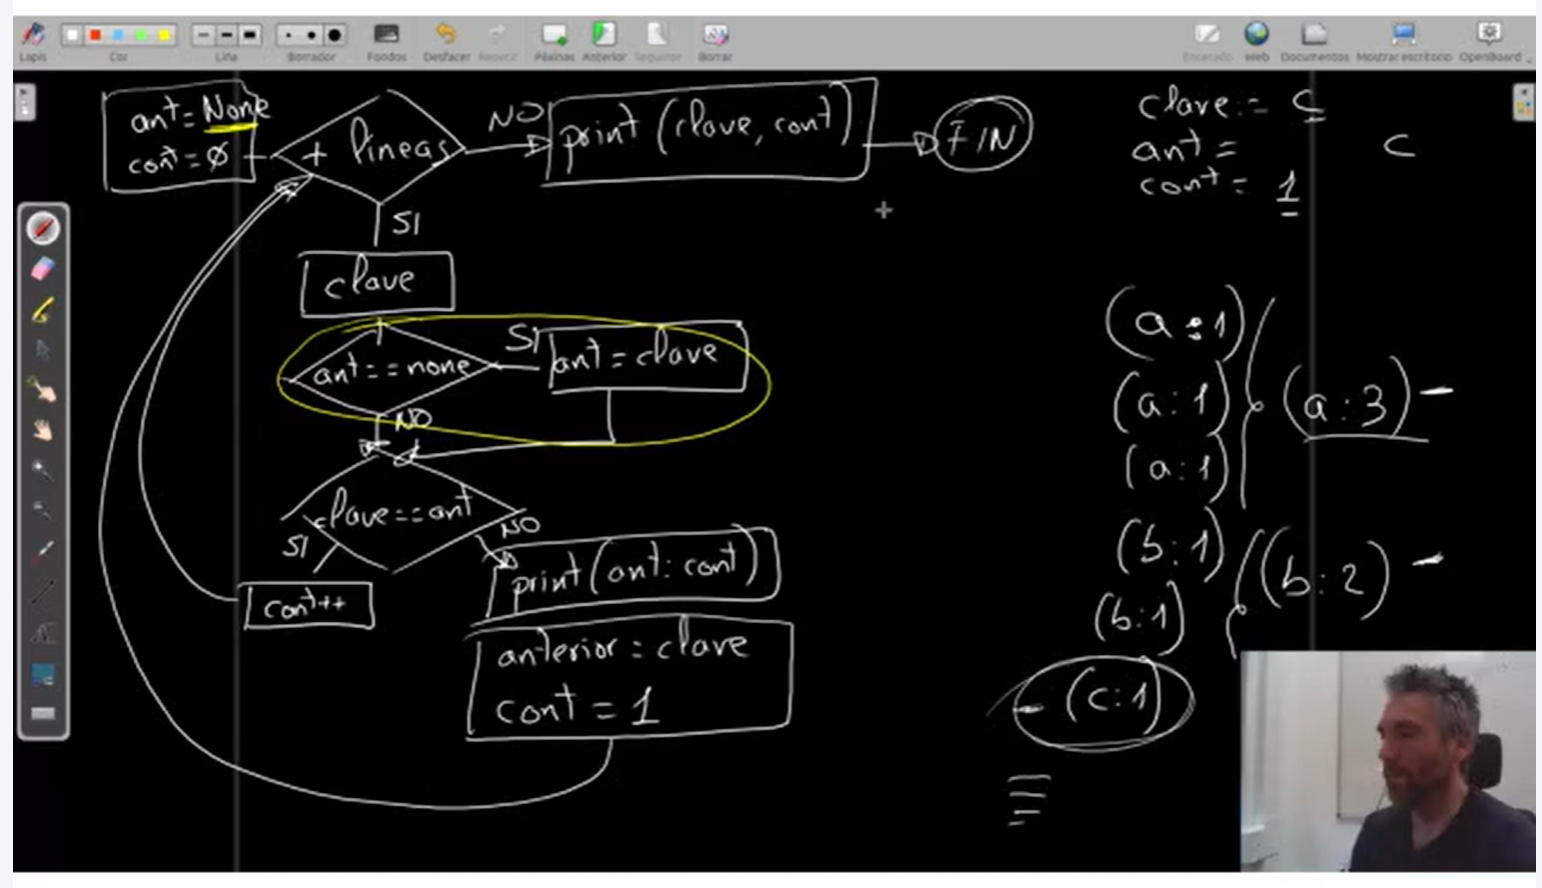 Lapis
Cor
Liña
Borrador
Fondos
Desfacer
Refacer
Páxinas
Anterior
Seguinte
Borrar
Encerado
Web
Documentos
Mostrar escritorio
OpenBoard
ant = None
cont = Ø
+ líneas
NO
print (clave, cont)
FIN
SI
clave
ant == none
SI
ant = clave
NO
clave == ant
SI
NO
cont++
print (ant: cont)
anterior = clave
cont = 1
clave = c
ant = c
cont = 1
(a : 1)
(a : 1)
(a : 3) -
(a : 1)
(b : 1)
(b : 2) -
(b : 1)
- (c : 1)